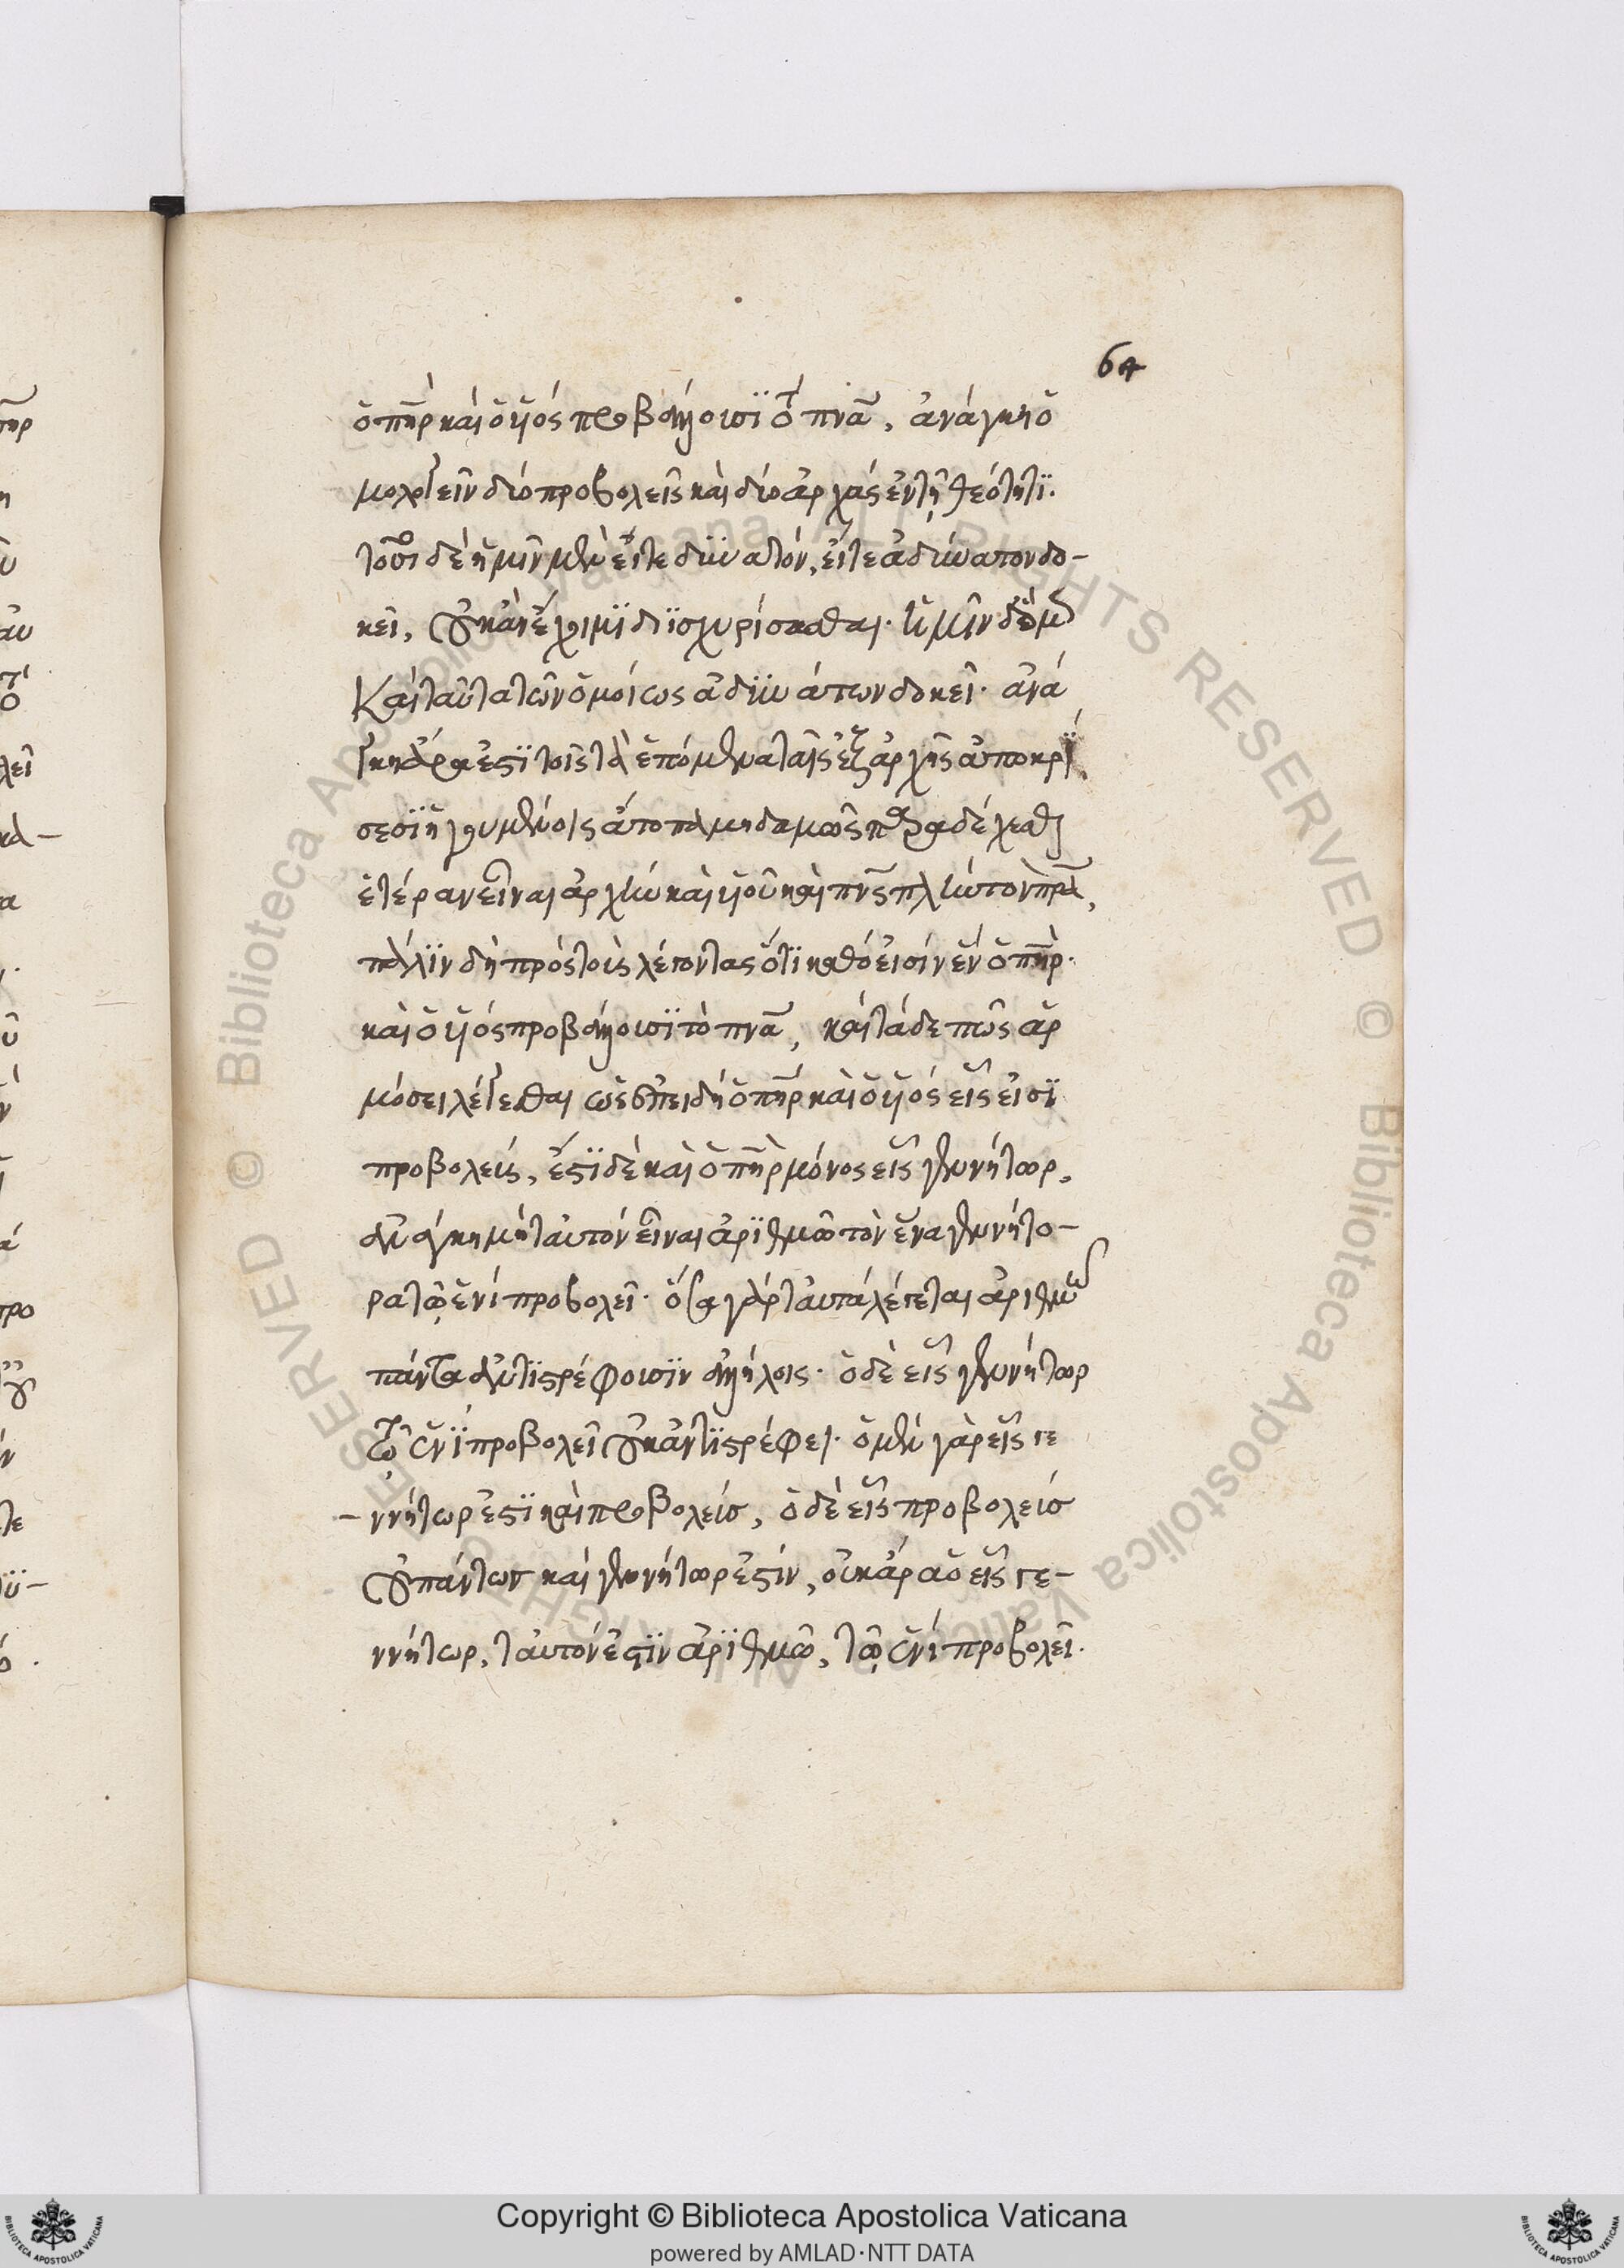 64
ὁ πὴρ καὶ ὁ ὑιὸς προβάλλουσϊ τὸ πνᾶ, ἀνάγκη ὁ
μολογεῖν δύο προβολεῖς καὶ δύο ἀρχάς ἐν τῇ θεότητϊ.
τοῦτο δὲ ἡμῖν μὲν εἴτε δυνατόν, εἴτε ἀδύνατον δο-
κεῖ, οὐκ ἂν ἔχοιμϊ διϊσχυρίσασθαι. ὑμῖν δὲ
καὶ ταῦτα τῶν ὁμοίως ἀδυνάτων δοκεῖ. ἀνά
γκη ἄρα ἐστϊ τοῖς τὰ ἑπόμενα ταῖς ἐξ ἀρχῆς ἀποκρϊ
σεσϊ ἡγουμένοις ἄτοπα μηδαμῶς παραδέχεσθαι
ἑτέραν εἶναι ἀρχὴν καὶ ὑιοῦ καὶ πνς πλὴν τὸν πρα,
πάλϊν δὴ πρὸς τοὺς λέγοντας ὅτϊ καθό εἰσίν ἕν ὁ πὴρ.
καὶ ὁ ὑιὸς προβάλλουσϊ τὸ πνᾶ, καὶ τάδε πως ἁρ
μόσει λέγεσθαι ὡς ἐπειδὴ ὁ πὴρ καὶ ὁ ὑιὸς εἷς εἰσϊ
προβολεύς, ἔστϊ δὲ καὶ ὁ πὴρ μόνος εἷς γεννήτωρ,
ἀνάγκη μὴ ταυτόν εἶναι ἀρϊθμῶ τὸν ἕνα γεννήτο-
ρα τῷ ἑνί προβολεῖ. ὅσα γάρ ταυτά λέγεται ἀριθμῶ
πάντα ἀντϊστρέφουσϊν ἀλλήλοις. ὁ δὲ εἷς γεννήτωρ
τῶ ἑνϊ προβολεῖ οὐκ ἀντϊστρέφει. ὁ μὲν γὰρ εἷς γε
-ννήτωρ ἐστϊ καὶ προβολεύς, ὁ δὲ εἷς προβολεύς
οὐ πάντως καὶ γεννήτωρ ἐστίν, οὐκ ἄρα ὁ εἷς γε-
ννήτωρ, ταυτόν ἐστϊν ἀρϊθμῶ, τῷ ἑνί προβολεῖ.
Copyright © Biblioteca Apostolica Vaticana
powered by AMLAD·NTT DATA